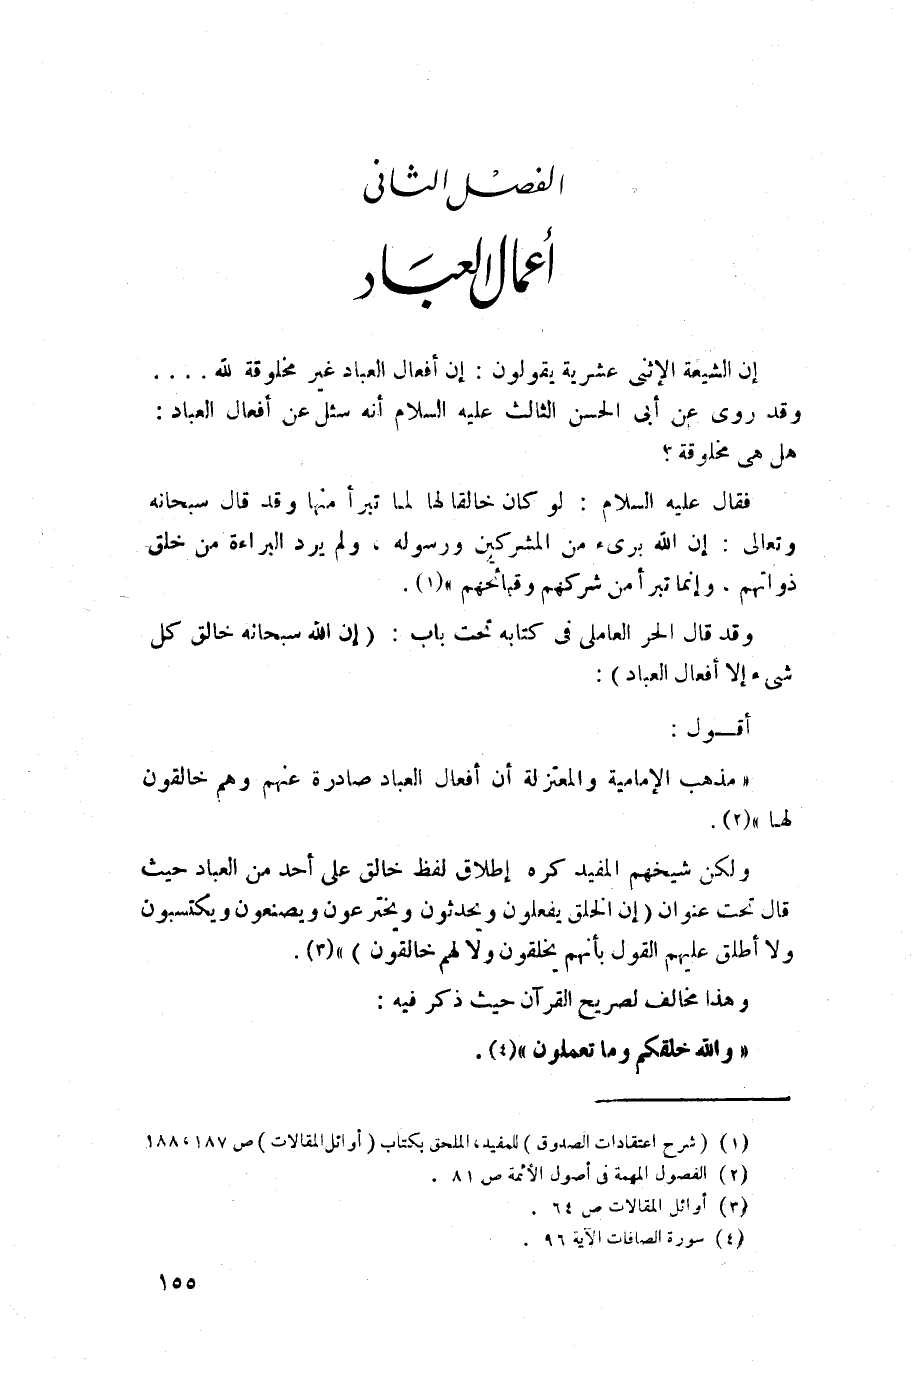 الفصل الثانى
أعمال العباد
إن الشيعة الإثنى عشرية يقولون : إن أفعال العباد غير مخلوقة لله . . . .
وقد روى عن أبى الحسن الثالث عليه السلام أنه سئل عن أفعال العباد :
هل هى مخلوقة ؟
فقال عليه السلام : لو كان خالقا لها لما تبرأ منها وقد قال سبحانه
وتعالى : إن الله برىء من المشركين ورسوله ، ولم يرد البراءة من خلق
ذواتهم . وإنما تبرأ من شركهم وقبائحهم »(١) .
وقد قال الحر العاملى فى كتابه تحت باب : ( إن الله سبحانه خالق كل
شىء إلا أفعال العباد ) :
أقـــول :
« مذهب الإمامية والمعتزلة أن أفعال العباد صادرة عنهم وهم خالقون
لها »(٢) .
ولكن شيخهم المفيد كره إطلاق لفظ خالق على أحد من العباد حيث
قال تحت عنوان ( إن الخلق يفعلون ويحدثون ويخترعون ويصنعون ويكتسبون
ولا أطلق عليهم القول بأنهم يخلقون ولا لهم خالقون ) »(٣) .
وهذا مخالف لصريح القرآن حيث ذكر فيه :
« والله خلقكم وما تعملون »(٤) .
(١) ( شرح اعتقادات الصدوق ) للمفيد، الملحق بكتاب ( أوائل المقالات ) ص ١٨٧ ، ١٨٨
(٢) الفصول المهمة فى أصول الأئمة ص ٨١ .
(٣) أوائل المقالات ص ٦٤ .
(٤) سورة الصافات الآية ٩٦ .
١٥٥